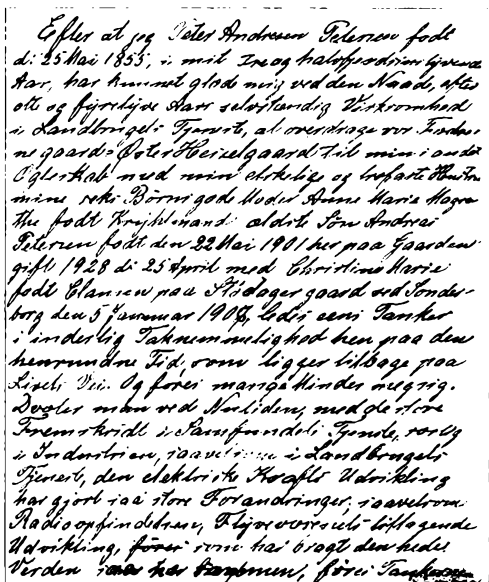 Efter at jeg Peter Andresen Petersen født
d: 25 Mai 1855, i mit Treoghalvfjerdsindstyvende
Aar, har kunnet glæde mig ved den Naade, efter
otte og fyrretyve Aars selvstændig Virksomhed
i Landbrugets Tjeneste, at overdrage vor Fædre-
ne gaard: Øster Heiselgaard til min i andet
Ægteskab med min elskelige og trofaste Hustru
mine seks Børns gode Moder Anne Marie Magre
the født ældste Søn Andreas
Petersen født den 22 Mai 1901 her paa Gaarden
gift 1928 d: 25 April med Christine Marie
født Clausen paa gaard ved Sønder-
borg den 5 Januar ledes eens Tanker
i inderlig Taknemmelighed hen paa den
henrundne Tid, som ligger tilbage paa
Livets Vei. Og hvor mange Minder
Dvæler man ved Nutiden, med de store
Fremskridt i Samfundets Tjeneste, som og
i Industrien, saavelsom i Landbrugets
Tjeneste, den elektriske Krafts Udvikling
har gjort saa store Forandringer, saavelsom
Radioopfindelsen, Flyvevæsenets tiltagende
Udvikling, som har bragt den hele
Verden